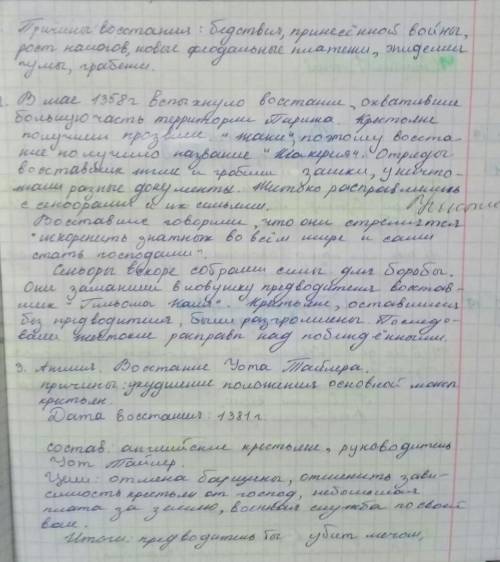 Причины восстания: бедствия, принесённой войны,
рост налогов, новые феодальные платежи, эпидемии
чумы, грабежи.
В мае 1358г вспыхнуло восстание, охватившее
большую часть территории Парижа. Крестьяне
получили прозвище "Жаки", поэтому восста-
ние получило название "Жакерия". Отряды
восставших жгли и грабили замки, уничто-
жали разные документы. Жестоко расправлялись
с сеньорами и их семьями.
Восставшие говорили, что они стремятся
"искоренить знатных во всём мире и сами
стать господами".
Сеньоры вскоре собрали силы для борьбы.
Они заманили в ловушку предводителя восстав-
ших "Гильома Каля". Крестьяне, оставшиеся
без предводителя, были разгромлены. Последо-
вали жестокие расправы над побеждёнными.
3. Англия. Восстание Уота Тайлера.
причины: ухудшение положения основной массы
крестьян.
Дата восстания: 1381г.
состав: английские крестьяне, руководитель
Уот Тайлер.
Цели: отмена барщины, отменить зави-
симость крестьян от господ, небольшая
плата за землю, военная служба по своей
воле.
Итоги: предводитель был убит мечом,